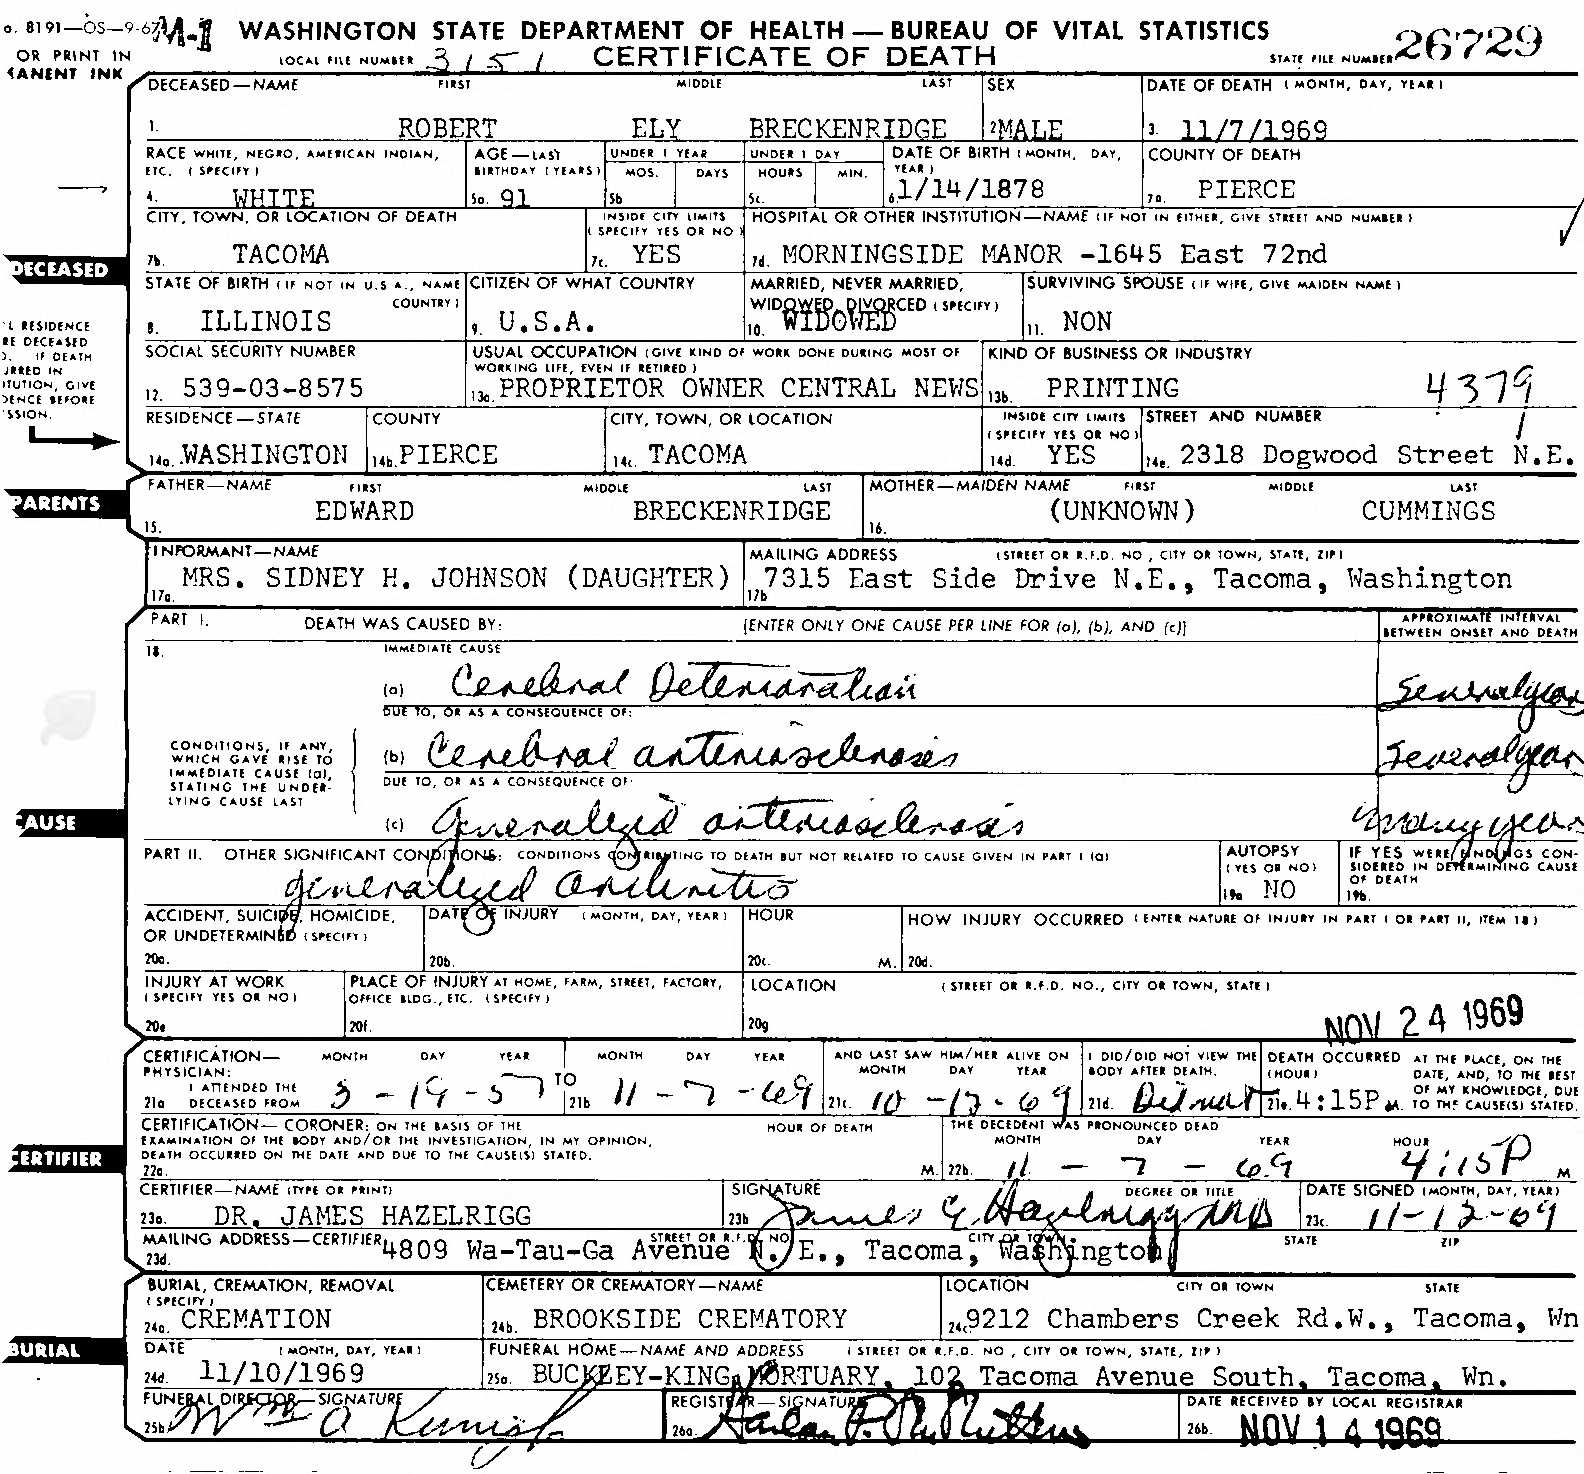 o. 8191—OS—9-67 M-1 WASHINGTON STATE DEPARTMENT OF HEALTH — BUREAU OF VITAL STATISTICS 26729
OR PRINT IN LOCAL FILE NUMBER 3151 CERTIFICATE OF DEATH STATE FILE NUMBER
ANENT INK
DECEASED—NAME FIRST MIDDLE LAST SEX DATE OF DEATH (MONTH, DAY, YEAR)
1. ROBERT ELY BRECKENRIDGE 2 MALE 3. 11/7/1969
RACE WHITE, NEGRO, AMERICAN INDIAN, AGE—LAST UNDER 1 YEAR UNDER 1 DAY DATE OF BIRTH (MONTH, DAY, COUNTY OF DEATH
ETC. (SPECIFY) BIRTHDAY (YEARS) MOS. DAYS HOURS MIN. YEAR)
4. WHITE 5a. 91 5b 5c. 6 1/14/1878 7a. PIERCE
CITY, TOWN, OR LOCATION OF DEATH INSIDE CITY LIMITS HOSPITAL OR OTHER INSTITUTION—NAME (IF NOT IN EITHER, GIVE STREET AND NUMBER)
(SPECIFY YES OR NO)
7b. TACOMA 7c. YES 7d. MORNINGSIDE MANOR -1645 East 72nd
DECEASED
STATE OF BIRTH (IF NOT IN U.S A., NAME CITIZEN OF WHAT COUNTRY MARRIED, NEVER MARRIED, SURVIVING SPOUSE (IF WIFE, GIVE MAIDEN NAME)
COUNTRY) WIDOWED, DIVORCED (SPECIFY)
8. ILLINOIS 9. U.S.A. 10. WIDOWED 11. NON
'L RESIDENCE
RE DECEASED
). IF DEATH
URRED IN
ITUTION, GIVE
DENCE BEFORE
SSION.
SOCIAL SECURITY NUMBER USUAL OCCUPATION (GIVE KIND OF WORK DONE DURING MOST OF KIND OF BUSINESS OR INDUSTRY
WORKING LIFE, EVEN IF RETIRED)
12. 539-03-8575 13a. PROPRIETOR OWNER CENTRAL NEWS 13b. PRINTING 4379
RESIDENCE—STATE COUNTY CITY, TOWN, OR LOCATION INSIDE CITY LIMITS STREET AND NUMBER
(SPECIFY YES OR NO)
14a. WASHINGTON 14b. PIERCE 14c. TACOMA 14d. YES 14e. 2318 Dogwood Street N.E.
PARENTS
FATHER—NAME FIRST MIDDLE LAST MOTHER—MAIDEN NAME FIRST MIDDLE LAST
15. EDWARD BRECKENRIDGE 16. (UNKNOWN) CUMMINGS
INFORMANT—NAME MAILING ADDRESS (STREET OR R.F.D. NO, CITY OR TOWN, STATE, ZIP)
17a. MRS. SIDNEY H. JOHNSON (DAUGHTER) 17b 7315 East Side Drive N.E., Tacoma, Washington
PART I. DEATH WAS CAUSED BY: [ENTER ONLY ONE CAUSE PER LINE FOR (a), (b), AND (c)] APPROXIMATE INTERVAL
BETWEEN ONSET AND DEATH
18. IMMEDIATE CAUSE
(a) Cerebral Deterioration Several year
DUE TO, OR AS A CONSEQUENCE OF:
CONDITIONS, IF ANY,
WHICH GAVE RISE TO
IMMEDIATE CAUSE (a),
STATING THE UNDER-
LYING CAUSE LAST
(b) Cerebral arteriosclerosis Several year
DUE TO, OR AS A CONSEQUENCE OF
CAUSE
(c) Generalized arteriosclerosis many year
PART II. OTHER SIGNIFICANT CONDITIONS: CONDITIONS CONTRIBUTING TO DEATH BUT NOT RELATED TO CAUSE GIVEN IN PART I (a) AUTOPSY IF YES WERE FINDINGS CON-
(YES OR NO) SIDERED IN DETERMINING CAUSE
OF DEATH
generalized Arthritis 19a NO 19b.
ACCIDENT, SUICIDE, HOMICIDE, DATE OF INJURY (MONTH, DAY, YEAR) HOUR HOW INJURY OCCURRED (ENTER NATURE OF INJURY IN PART I OR PART II, ITEM 18)
OR UNDETERMINED (SPECIFY)
20a. 20b. 20c. M. 20d.
INJURY AT WORK PLACE OF INJURY AT HOME, FARM, STREET, FACTORY, LOCATION (STREET OR R.F.D. NO., CITY OR TOWN, STATE)
(SPECIFY YES OR NO) OFFICE BLDG., ETC. (SPECIFY)
20e 20f. 20g NOV 24 1969
CERTIFICATION— MONTH DAY YEAR MONTH DAY YEAR AND LAST SAW HIM/HER ALIVE ON I DID/DID NOT VIEW THE DEATH OCCURRED AT THE PLACE, ON THE
PHYSICIAN: MONTH DAY YEAR BODY AFTER DEATH. (HOUR) DATE, AND, TO THE BEST
I ATTENDED THE TO OF MY KNOWLEDGE, DUE
21a DECEASED FROM 3 - 19 - 57 21b 11 - 7 - 69 21c. 10 - 13 - 69 21d. Did not 21e. 4:15P M. TO THE CAUSE(S) STATED.
CERTIFICATION— CORONER: ON THE BASIS OF THE HOUR OF DEATH THE DECEDENT WAS PRONOUNCED DEAD
EXAMINATION OF THE BODY AND/OR THE INVESTIGATION, IN MY OPINION, MONTH DAY YEAR HOUR
DEATH OCCURRED ON THE DATE AND DUE TO THE CAUSE(S) STATED.
22a. M. 22b. 11 - 7 - 69 4:15P M
CERTIFIER
CERTIFIER—NAME (TYPE OR PRINT) SIGNATURE DEGREE OR TITLE DATE SIGNED (MONTH, DAY, YEAR)
23a. DR. JAMES HAZELRIGG 23b James G Hazelrigg MD 23c. 11-12-69
MAILING ADDRESS—CERTIFIER STREET OR R.F.D. NO CITY OR TOWN STATE ZIP
23d. 4809 Wa-Tau-Ga Avenue N.E., Tacoma, Washington
BURIAL, CREMATION, REMOVAL CEMETERY OR CREMATORY—NAME LOCATION CITY OR TOWN STATE
(SPECIFY)
24a. CREMATION 24b. BROOKSIDE CREMATORY 24c. 9212 Chambers Creek Rd.W., Tacoma, Wn
BURIAL
DATE (MONTH, DAY, YEAR) FUNERAL HOME—NAME AND ADDRESS (STREET OR R.F.D. NO, CITY OR TOWN, STATE, ZIP)
24d. 11/10/1969 25a. BUCKLEY-KING MORTUARY, 102 Tacoma Avenue South, Tacoma, Wn.
FUNERAL DIRECTOR—SIGNATURE REGISTRAR—SIGNATURE DATE RECEIVED BY LOCAL REGISTRAR
25b Wm A 26a. Harlan P. 26b. NOV 14 1969